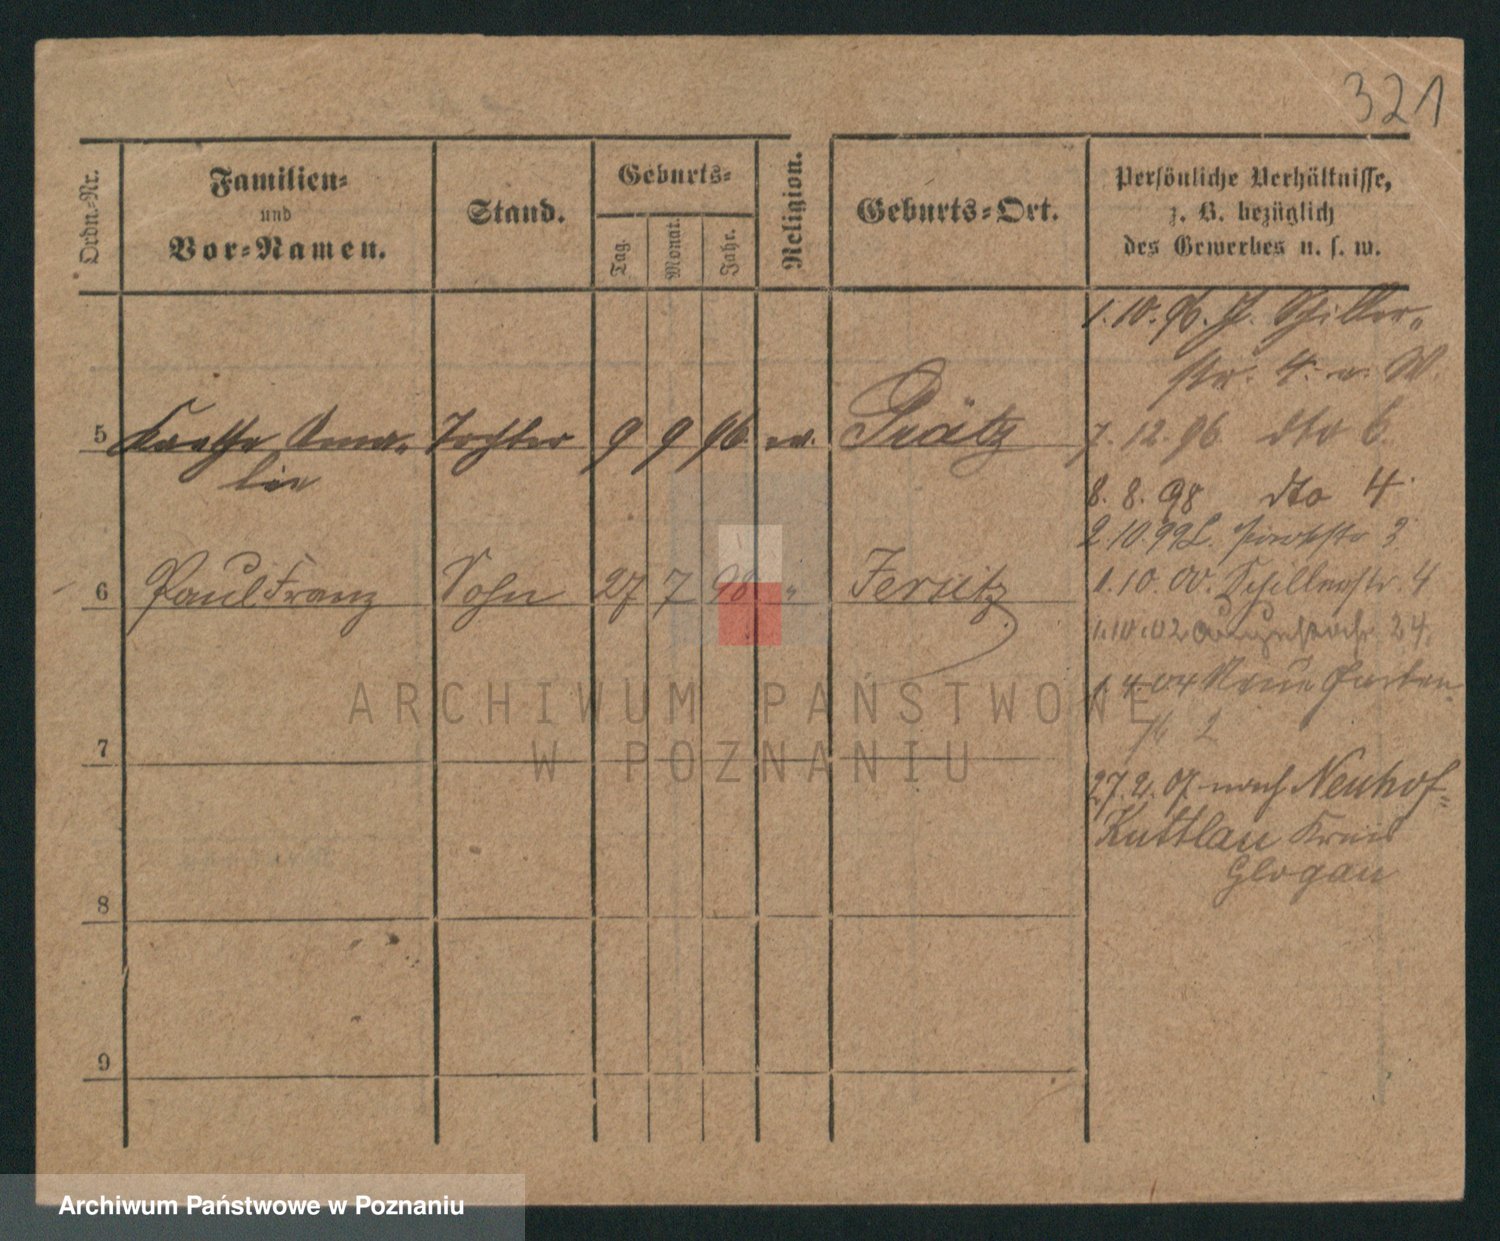 321
Ordn.-Nr.
Familien-
und
Vor-Namen.
Stand.
Geburts-
Tag.
Monat.
Jahr.
Religion.
Geburts-Ort.
Persönliche Verhältnisse,
z. B. bezüglich
des Gewerbes u. s. w.
1.10.96. Schiller-
str. 4. W.
5 Kaethe Ama- Tochter 9 9 96 ev.
lie
7.12.96 dto 6.
8.8.98 dto 4
2.10.99 3
6 Paul Franz Sohn 27 7 98 " Jersitz
1.10.00. Schillerstr. 4
1.10.02 24.
1.4.04 Neue Garten
str 2
7
27.2.07. nach Neuhof-
Kuttlau Kreis
Glogau
8
9
ARCHIWUM PAŃSTWOWE
W POZNANIU
Archiwum Państwowe w Poznaniu